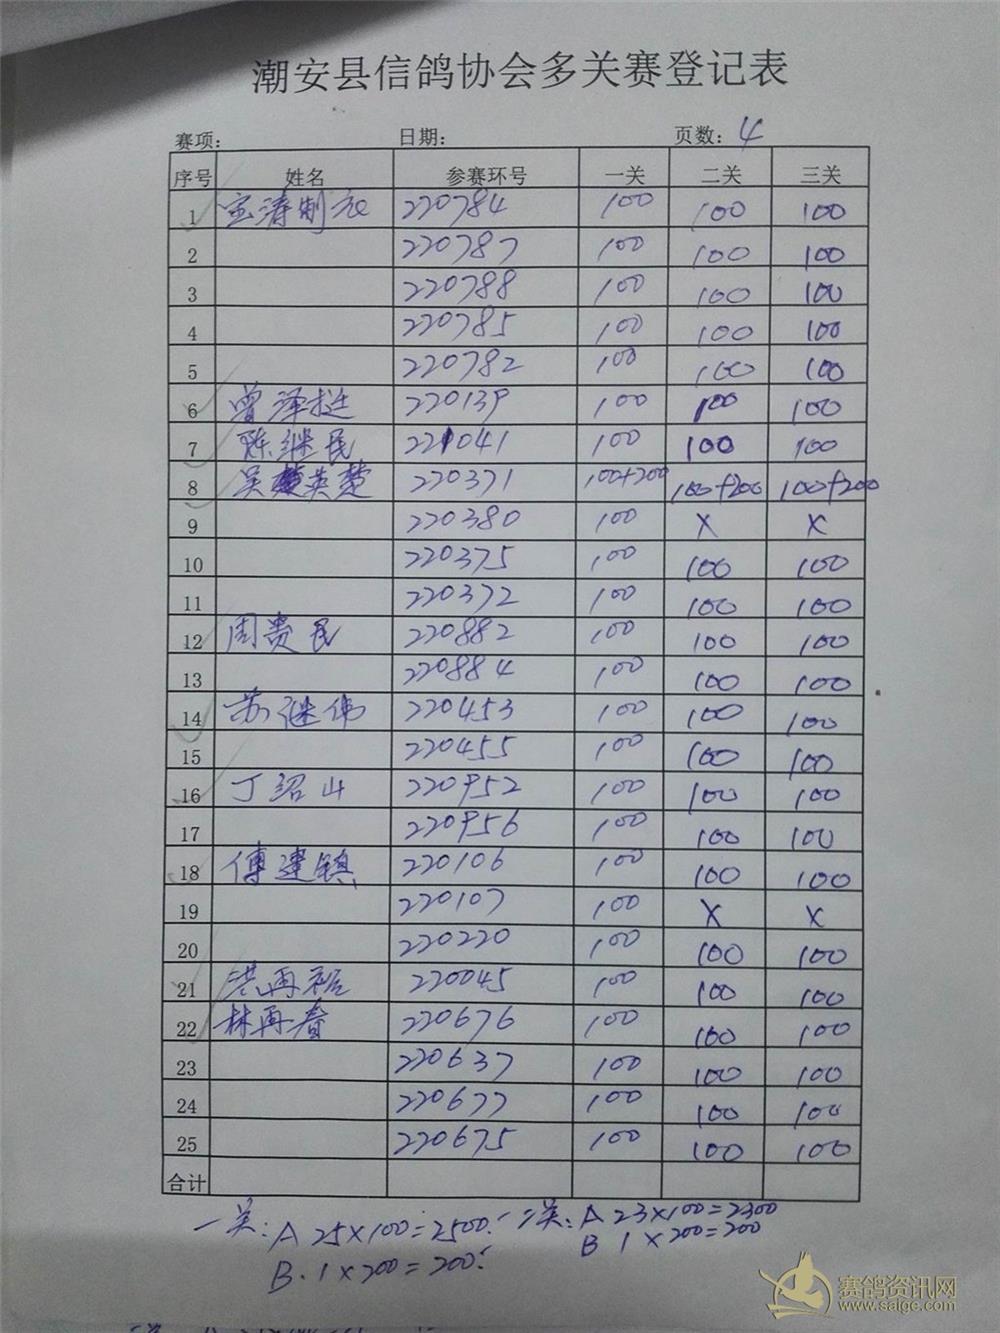 潮安县信鸽协会多关赛登记表
赛项: 日期: 页数: 4
序号 姓名 参赛环号 一关 二关 三关
1 宝涛制衣 220784 100 100 100
2 220787 100 100 100
3 220788 100 100 100
4 220785 100 100 100
5 220782 100 100 100
6 曾泽挺 220139 100 100 100
7 陈继民 221041 100 100 100
8 吴英楚 220371 100+200 100+200 100+200
9 220380 100 X X
10 220375 100 100 100
11 220372 100 100 100
12 周贵民 220882 100 100 100
13 220884 100 100 100
14 苏继伟 220453 100 100 100
15 220455 100 100 100
16 丁绍山 220952 100 100 100
17 220956 100 100 100
18 傅建镇 220106 100 100 100
19 220107 100 X X
20 220220 100 100 100
21 洪再裕 220045 100 100 100
22 林再春 220676 100 100 100
23 220637 100 100 100
24 220677 100 100 100
25 220675 100 100 100
合计
一关: A 25×100=2500. 二关: A 23×100=2300
B. 1×200=200. B 1×200=200
赛鸽资讯网
www.saigc.com